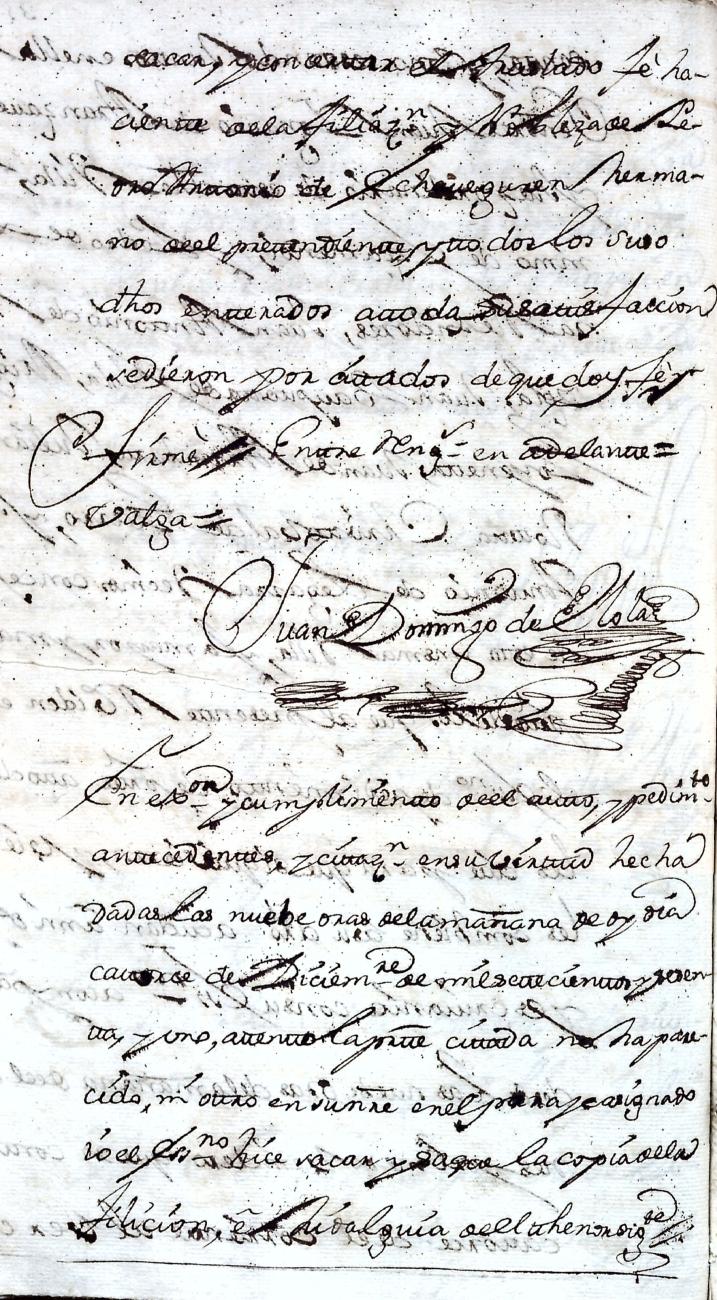 sacar, y concertar el traslado fè ha-
ciente de la filiaz.n y Nobleza de Pe-
dro Antonio de Echeveguren herma-
no de el pretendiente, y todos los suso
dhos enterados a toda su satisfaccion
se dieron por citados de que doy fè, y
firmè // Entre Reng.s en adelante =
valga =
Juan Domingo de Elola
En ex.on y cumplimento de el auto, y pedim.to
antecedentes, y citaz.n en su virtud hecha
Dadas las nuebe oras de la mañana de oy dia
catorce de Diciem.re de mil setecientos y seten-
ta, y uno, atento la parte citada no ha pare-
cido, ni otro en su nre en el para je asignado
io el Ess.no hice sacar y saque la copia de la
filicion, è Hidalguia de el thenor sig.te //